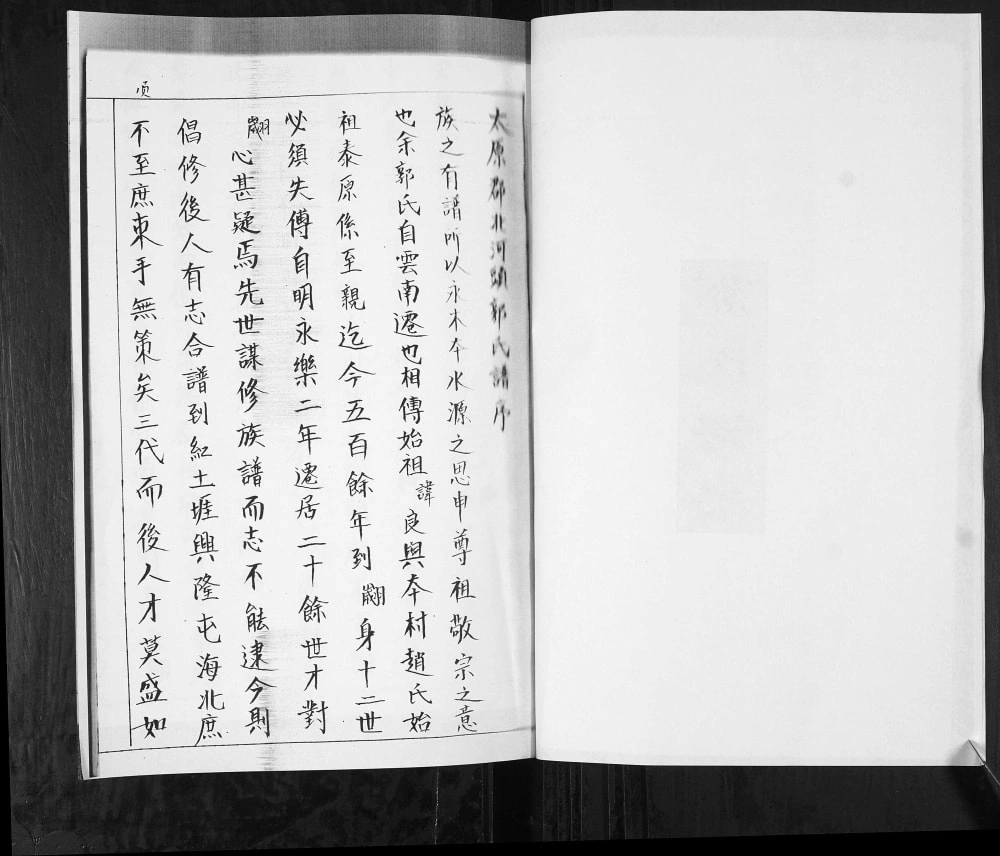 太原郡北河頭郭氏譜序
族之有譜所以永木本水源之思申尊祖敬宗之意
也余郭氏自雲南遷也相傳始祖諱良與本村趙氏始
祖泰原係至親迄今五百餘年到翽身十二世
必須失傳自明永樂二年遷居二十餘世才對
翽心甚疑焉先世謀修族譜而志不能逮今則
倡修後人有志合譜到紅土堐興隆屯海北庶
不至庶束手無策矣三代而後人才莫盛如
頁